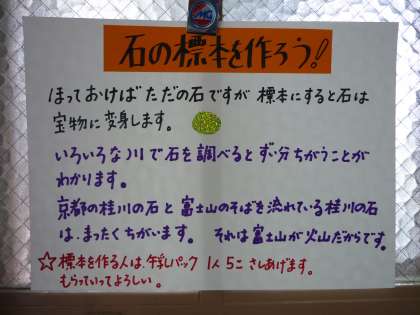 石の標本を作ろう!
ほっておけば ただの石ですが 標本にすると石は
宝物に変身します。
いろいろな川で石を調べるとずい分ちがうことが
わかります。
京都の桂川の石と富士山のそばを流れている桂川の石
は、まったくちがいます。 それは富士山が火山だからです。
☆標本を作る人は、牛乳パック 1人 5こ さしあげます。
もらっていってよろしい。